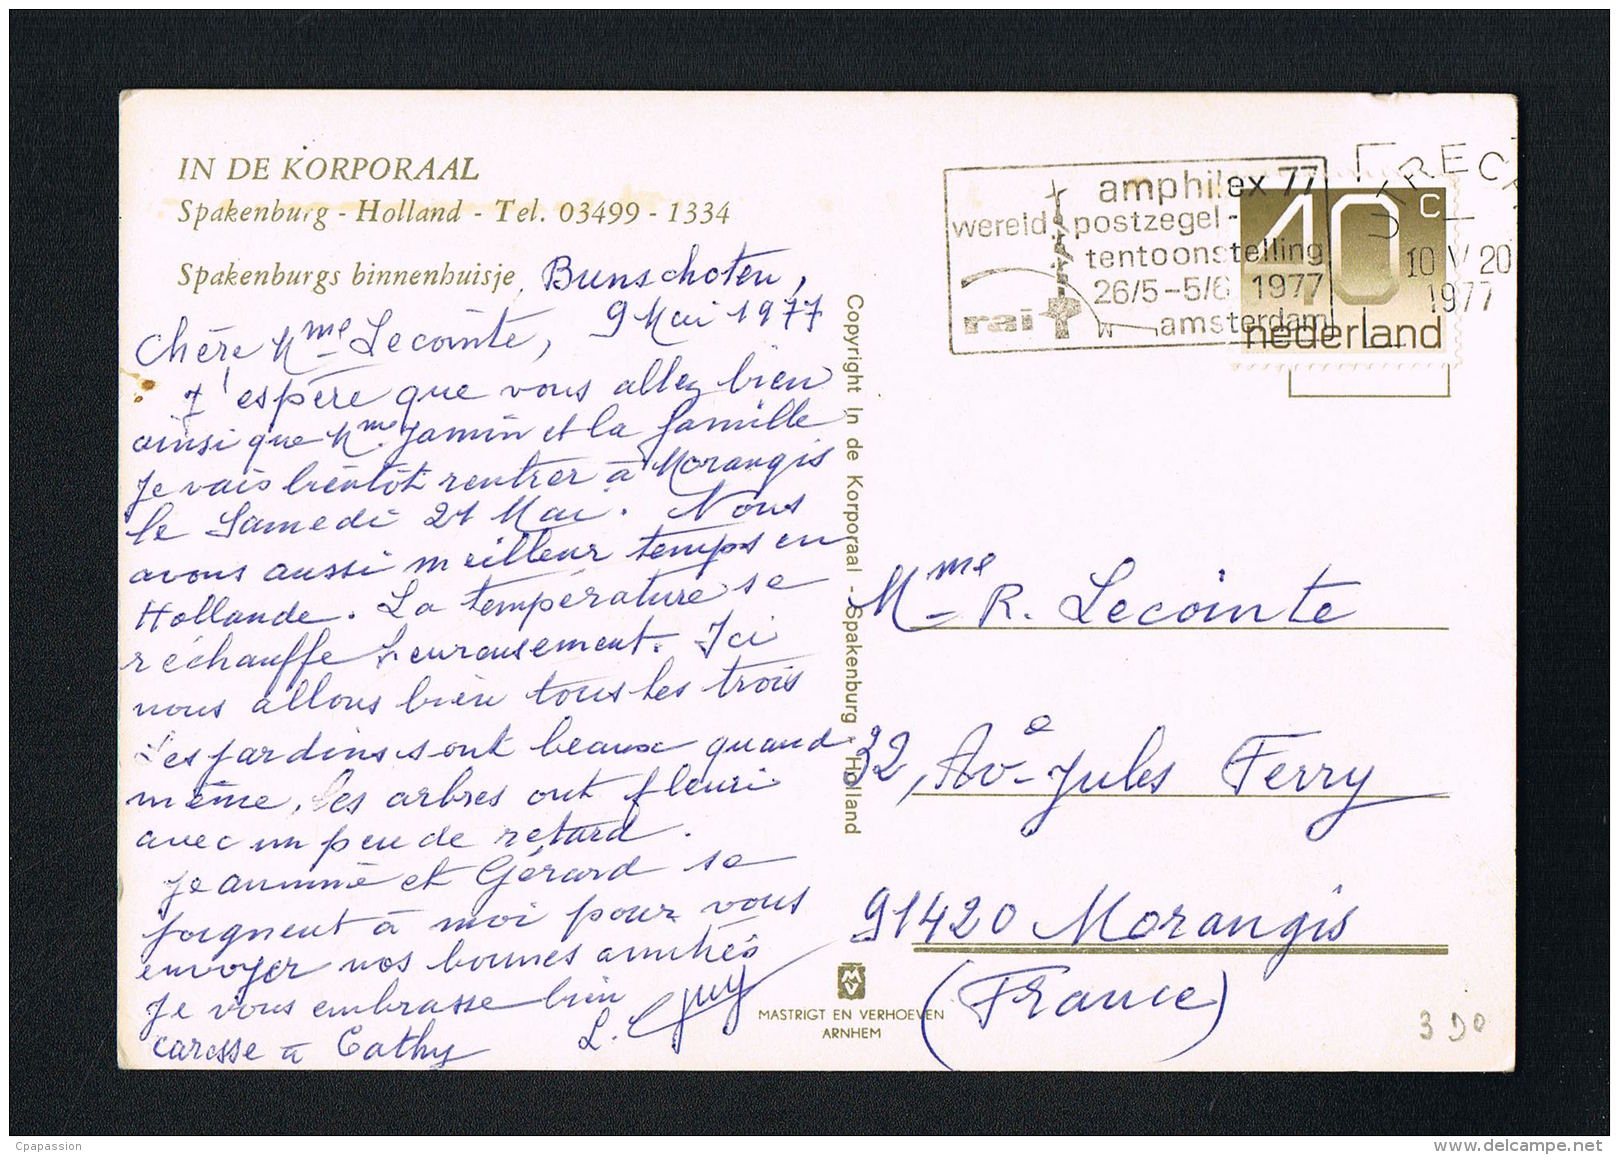 IN DE KORPORAAL
Spakenburg - Holland - Tel. 03499 - 1334
Spakenburgs binnenhuisje
Bunschoten,
9 Mai 1977
Chère Mme Lecointe,
J'espère que vous allez bien
ainsi que Mme Jamin et la famille
Je vais bientôt rentrer à Morangis
le Samedi 21 Mai. Nous
avons aussi meilleur temps en
Hollande. La température se
réchauffe heureusement. Ici
nous allons bien tous les trois
Les jardins sont beaux quand
même, les arbres ont fleuri
avec un peu de retard.
Jeannine et Gérard se
joignent à moi pour vous
envoyer nos bonnes amitiés
Je vous embrasse bien
caresse à Cathy
L.
Copyright In de Korporaal - Spakenburg - Holland
amphilex 77
wereld postzegel-
tentoonstelling
26/5-5/6 1977
rai W amsterdam
UTRECH
10 V 20
1977
40 c
nederland
Mme R. Lecointe
32, Ave Jules Ferry
91420 Morangis
(France)
MV
MASTRIGT EN VERHOEVEN
ARNHEM
3 90
Cpapassion
www.delcampe.net